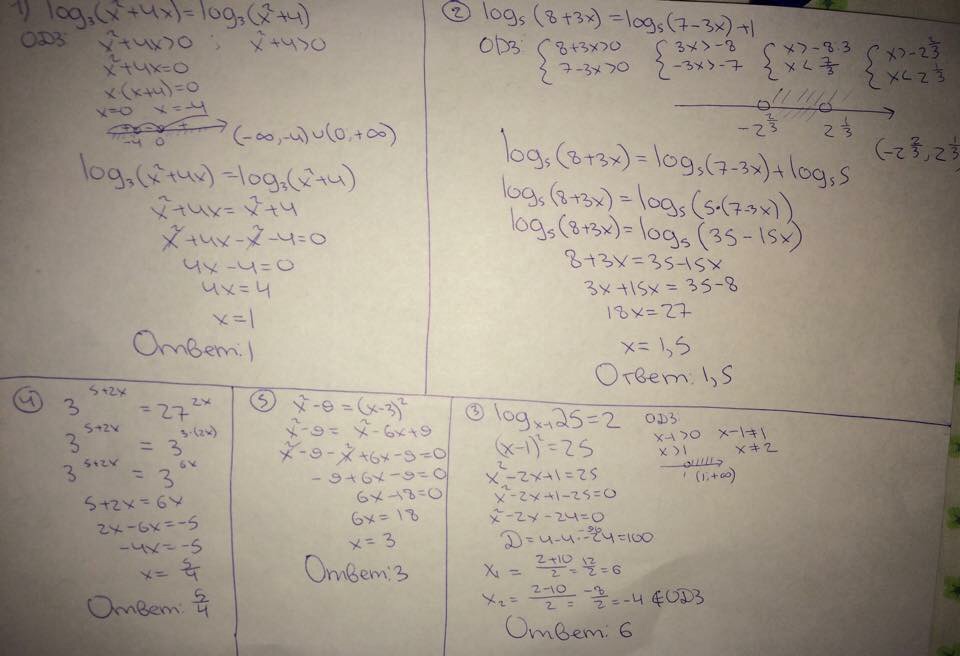 1) log₃(x²+4x)=log₃(x²+4)
ОДЗ: x²+4x>0 ; x²+4>0
x²+4x=0
x·(x+4)=0
x=0 x=-4
+ - +
-4 0
(-∞,-4)∪(0,+∞)
log₃(x²+4x)=log₃(x²+4)
x²+4x=x²+4
x²+4x-x²-4=0
4x-4=0
4x=4
x=1
Ответ: 1
② log₅(8+3x)=log₅(7-3x)+1
ОДЗ { 8+3x>0 { 3x>-8 { x>-8:3 { x>-2 2/3
7-3x>0 -3x>-7 x<7/3 x<2 1/3
-2 2/3 2 1/3
(-2 2/3, 2 1/3
log₅(8+3x)=log₅(7-3x)+log₅5
log₅(8+3x)=log₅(5·(7-3x))
log₅(8+3x)=log₅(35-15x)
8+3x=35-15x
3x+15x=35-8
18x=27
x=1,5
Ответ: 1,5
④ 3^(5+2x) = 27^(2x)
3^(5+2x) = 3^(3·(2x))
3^(5+2x) = 3^(6x)
5+2x=6x
2x-6x=-5
-4x=-5
x=5/4
Ответ: 5/4
⑤ x²-9=(x-3)²
x²-9=x²-6x+9
x²-9-x²+6x-9=0
-9+6x-9=0
6x-18=0
6x=18
x=3
Ответ: 3
③ log_(x-1) 25=2 ОДЗ
(x-1)²=25 x-1>0 x-1≠1
x>1 x≠2
1 (1;+∞)
x²-2x+1=25
x²-2x+1-25=0
x²-2x-24=0
D=4-4·-24=100
x₁ = (2+10)/2 = 12/2 = 6
x₂ = (2-10)/2 = -8/2 = -4 ∉ ОДЗ
Ответ: 6